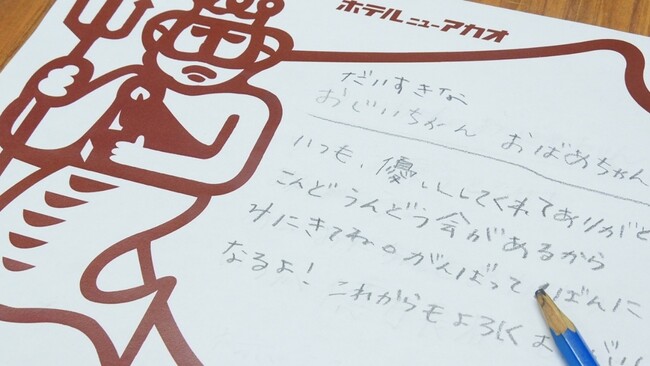 ホテルニューアカオ
だいすきな
おじいちゃん おばあちゃん
いつも、優しくしてくれてありがと
こんどうんどう会があるから
みにきてね。がんばっていばんに
なるよ! これからもよろしく